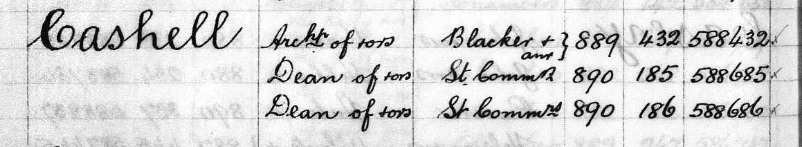 Cashell Archr of tors Blacker + anr } 889 432 588432
Dean of tors St. Commrs 890 185 588685
Dean of tors St Commrs 890 186 588686